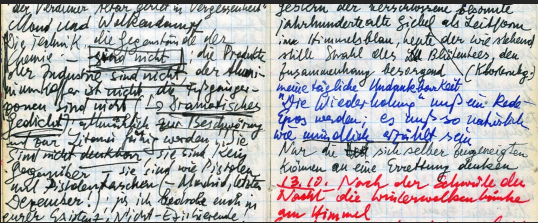 der Verdürer [...] gerät in Vergessenheit"
Mond und Wolkendampf
Die Technik, die Gegenstände der
Chemie – sind nicht; die Produkte
der Industrie sind nicht, der Alumi-
niumkoffer ist nicht, die Fußgänger-
zonen sind nicht (→ Dramatisches
Gedicht); untauglich zur Beschwörung
und zur Litanei für werden sie. Sie
sind nicht denkbar – sie sind kein
Gegenüber – sie sind wie Pistolen
und Pistolentaschen (Madrid, letzten
Dezember:) ja, ich beobache euch in
eurer Existenz, Nicht-Existierende!
gestern der zerschlossene besonnte
jahrhundertealte Giebel als Leitform
im Himmelsblau, heute der wie stehend
stille Strahl des Blütentees, den
Zusammenhang besorgend (Klosterbg.)
meine tägliche Undankbarkeit
"Die Wiederholung" muß ein Rede-
Epos werden; es muß so natürlich
wie mündlich erzählt sein
Nur die sich selber Zugeneigten
können an eine Errettung denken
13.10. – Nach der Schwüle der
Nacht – die Winterwolkenbänke
am Himmel